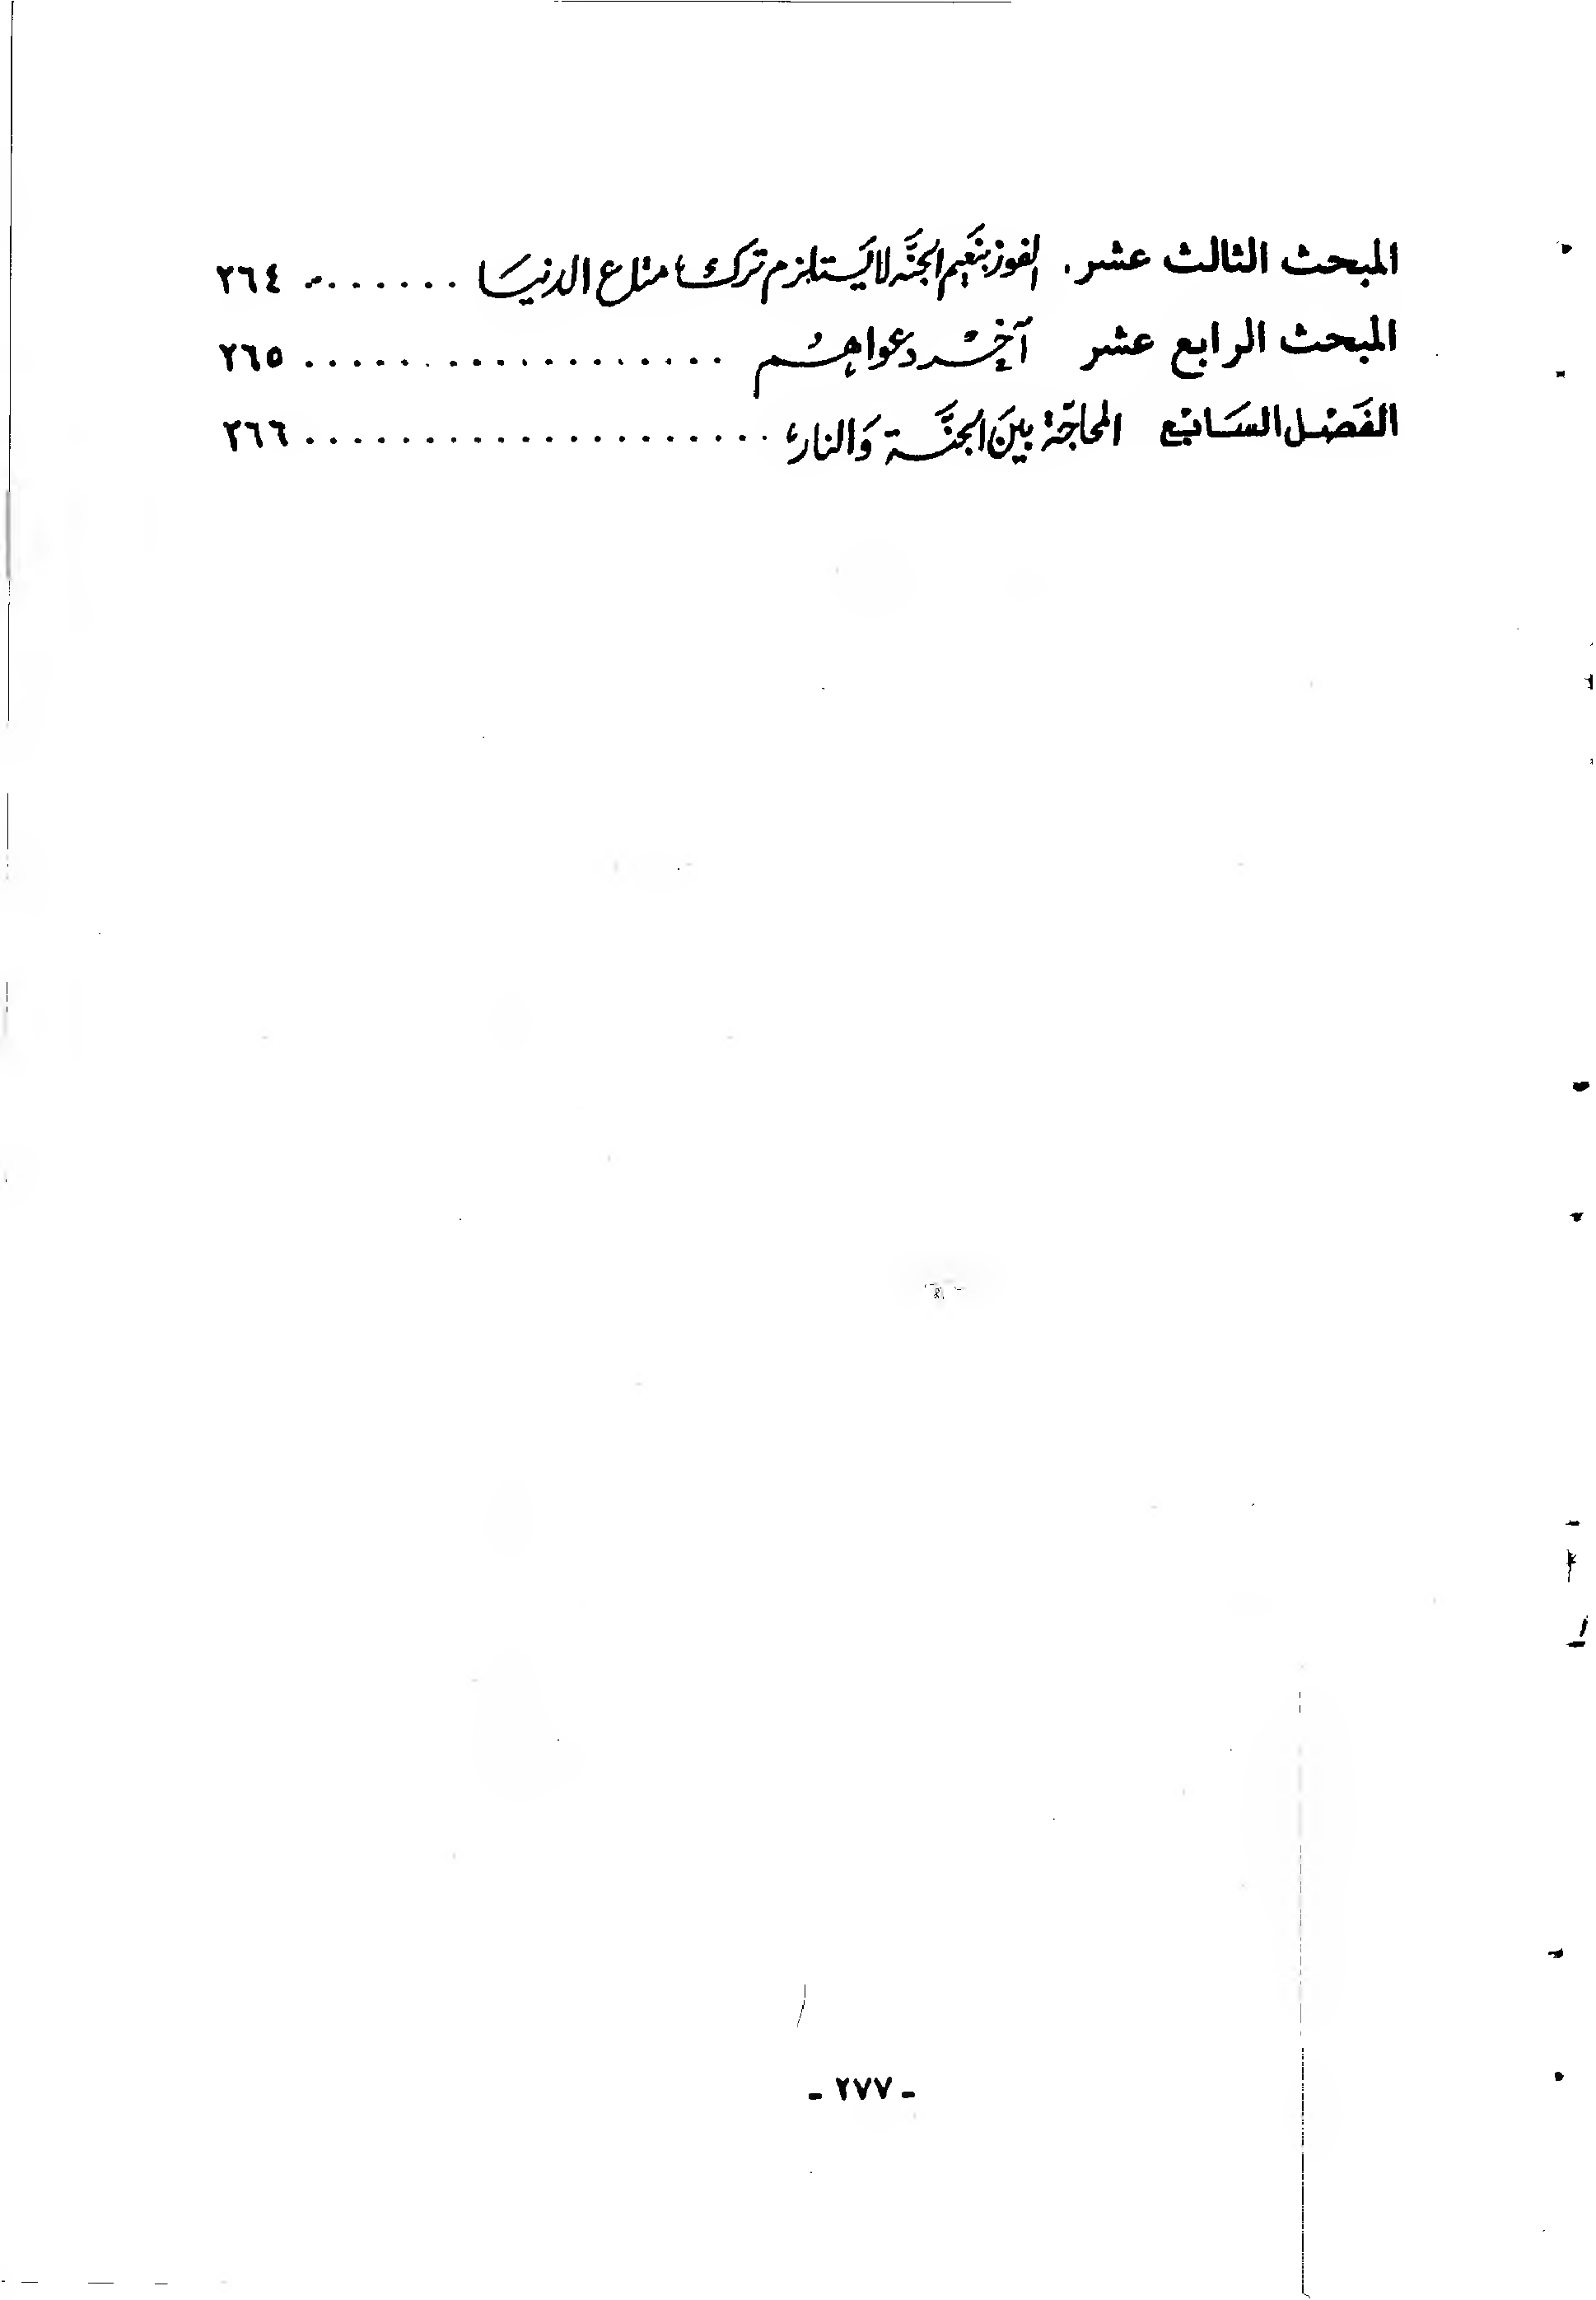 المبحث الثالث عشر. الفوز بنَعيم الجنَّه لا يَستلزم ترك متاع الدنيَا ....... ٢٦٤
المبحث الرابع عشر آخِر دعواهُم .................. ٢٦٥
الفَصْل السَابْع المحاجّة بينَ الجنَّة وَالنار .................... ٢٦٦
- ٢٧٧ -